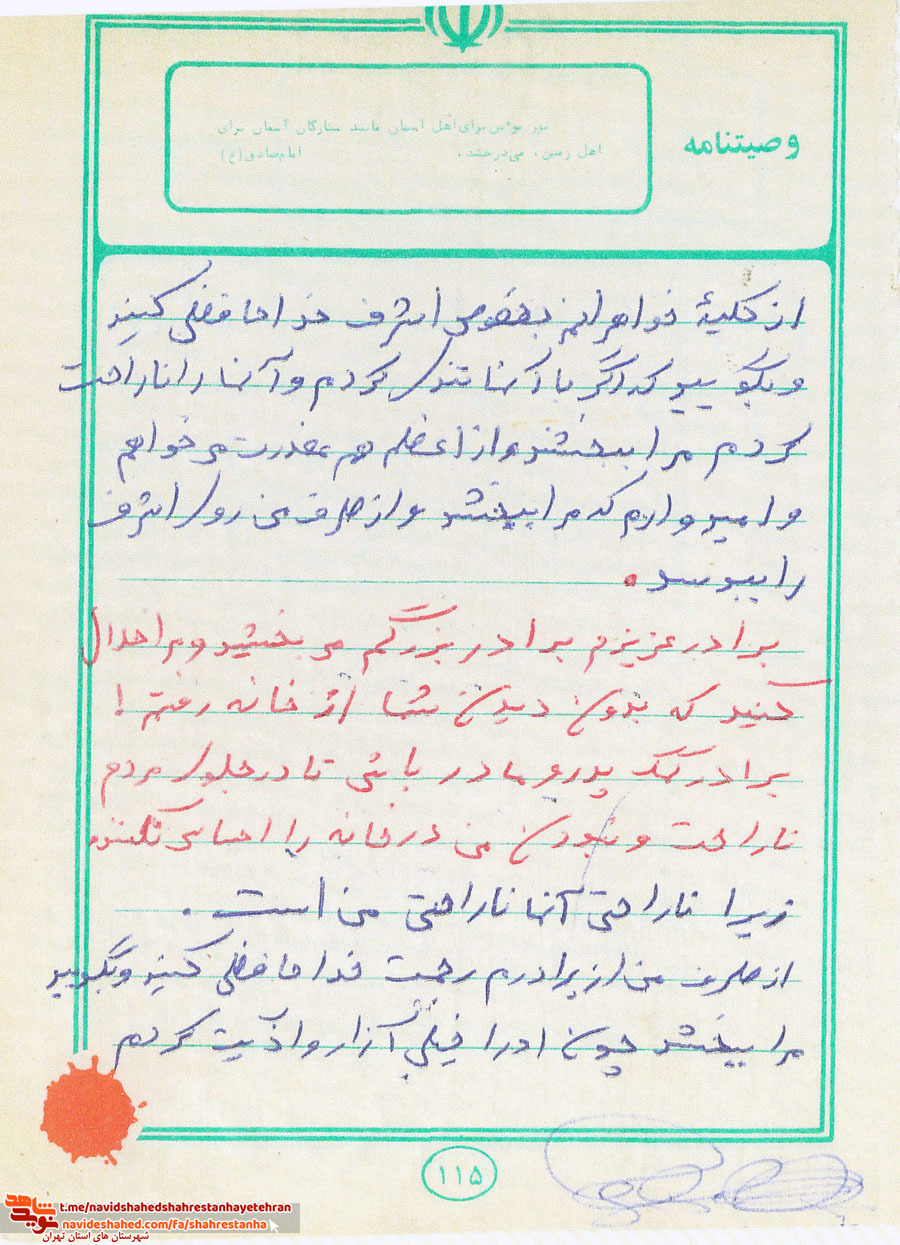 وصیتنامه
نور مؤمن برای اهل آسمان مانند ستارگان آسمان برای
اهل زمین، می‌درخشد. امام صادق (ع)
از کلیهٔ خواهرانم بخصوص اشرف خداحافظی کنید
و بگویید که اگر با آنها تندی کردم و آنها را ناراحت
کردم مرا ببخشند و از اعظم هم معذرت می خواهم
و امیدوارم که مرا ببخشد و از طرف من روی اشرف
را ببوسد.
برادر عزیزم برادر بزرگم می بخشید و مرا حلال
کنید که بدون دیدن شما از خانه رفتم!
برادر کمک پدر و مادر باشی تا در جلوی مردم
ناراحت و نبودن من در خانه را احساس نکنند
زیرا ناراحتی آنها ناراحتی من است.
از طرف من از برادرم رحمت خداحافظی کنید و بگویید
مرا ببخشد چون او را خیلی آزار و اذیت کردم
۱۱۵
نوید شاهد
t.me/navidshahedshahrestanhayetehran
navideshahed.com/fa/shahrestanha
شهرستان های استان تهران